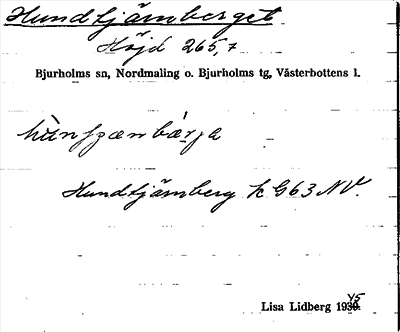 Hundtjärnberget
Höjd 265,7
Bjurholms sn, Nordmaling o. Bjurholms tg, Västerbottens l.
Hundtjärnberg k G63 NV.
Lisa Lidberg 1945